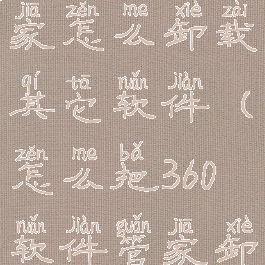 jiā zěn me xiè zài
家怎么卸载
qí tā ruǎn jiàn
其它软件（
zěn me bǎ
怎么把360
ruǎn jiàn guǎn jiā xiè
软件管家卸